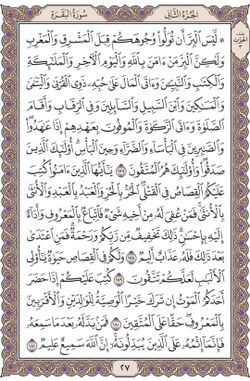 الجزء الثاني
سورة البقرة
۞ لَّيْسَ الْبِرَّ أَن تُوَلُّوا وُجُوهَكُمْ قِبَلَ الْمَشْرِقِ وَالْمَغْرِبِ
وَلَٰكِنَّ الْبِرَّ مَنْ آمَنَ بِاللَّهِ وَالْيَوْمِ الْآخِرِ وَالْمَلَائِكَةِ
وَالْكِتَابِ وَالنَّبِيِّينَ وَآتَى الْمَالَ عَلَىٰ حُبِّهِ ذَوِي الْقُرْبَىٰ وَالْيَتَامَىٰ
وَالْمَسَاكِينَ وَابْنَ السَّبِيلِ وَالسَّائِلِينَ وَفِي الرِّقَابِ وَأَقَامَ
الصَّلَاةَ وَآتَى الزَّكَاةَ وَالْمُوفُونَ بِعَهْدِهِمْ إِذَا عَاهَدُوا
وَالصَّابِرِينَ فِي الْبَأْسَاءِ وَالضَّرَّاءِ وَحِينَ الْبَأْسِ أُولَٰئِكَ الَّذِينَ
صَدَقُوا وَأُولَٰئِكَ هُمُ الْمُتَّقُونَ ١٧٧ يَا أَيُّهَا الَّذِينَ آمَنُوا كُتِبَ
عَلَيْكُمُ الْقِصَاصُ فِي الْقَتْلَى الْحُرُّ بِالْحُرِّ وَالْعَبْدُ بِالْعَبْدِ وَالْأُنثَىٰ
بِالْأُنثَىٰ فَمَنْ عُفِيَ لَهُ مِنْ أَخِيهِ شَيْءٌ فَاتِّبَاعٌ بِالْمَعْرُوفِ وَأَدَاءٌ
إِلَيْهِ بِإِحْسَانٍ ذَٰلِكَ تَخْفِيفٌ مِّن رَّبِّكُمْ وَرَحْمَةٌ فَمَنِ اعْتَدَىٰ
بَعْدَ ذَٰلِكَ فَلَهُ عَذَابٌ أَلِيمٌ ١٧٨ وَلَكُمْ فِي الْقِصَاصِ حَيَاةٌ يَا أُولِي
الْأَلْبَابِ لَعَلَّكُمْ تَتَّقُونَ ١٧٩ كُتِبَ عَلَيْكُمْ إِذَا حَضَرَ
أَحَدَكُمُ الْمَوْتُ إِن تَرَكَ خَيْرًا الْوَصِيَّةُ لِلْوَالِدَيْنِ وَالْأَقْرَبِينَ
بِالْمَعْرُوفِ حَقًّا عَلَى الْمُتَّقِينَ ١٨٠ فَمَن بَدَّلَهُ بَعْدَمَا سَمِعَهُ
فَإِنَّمَا إِثْمُهُ عَلَى الَّذِينَ يُبَدِّلُونَهُ إِنَّ اللَّهَ سَمِيعٌ عَلِيمٌ ١٨١
٢٧